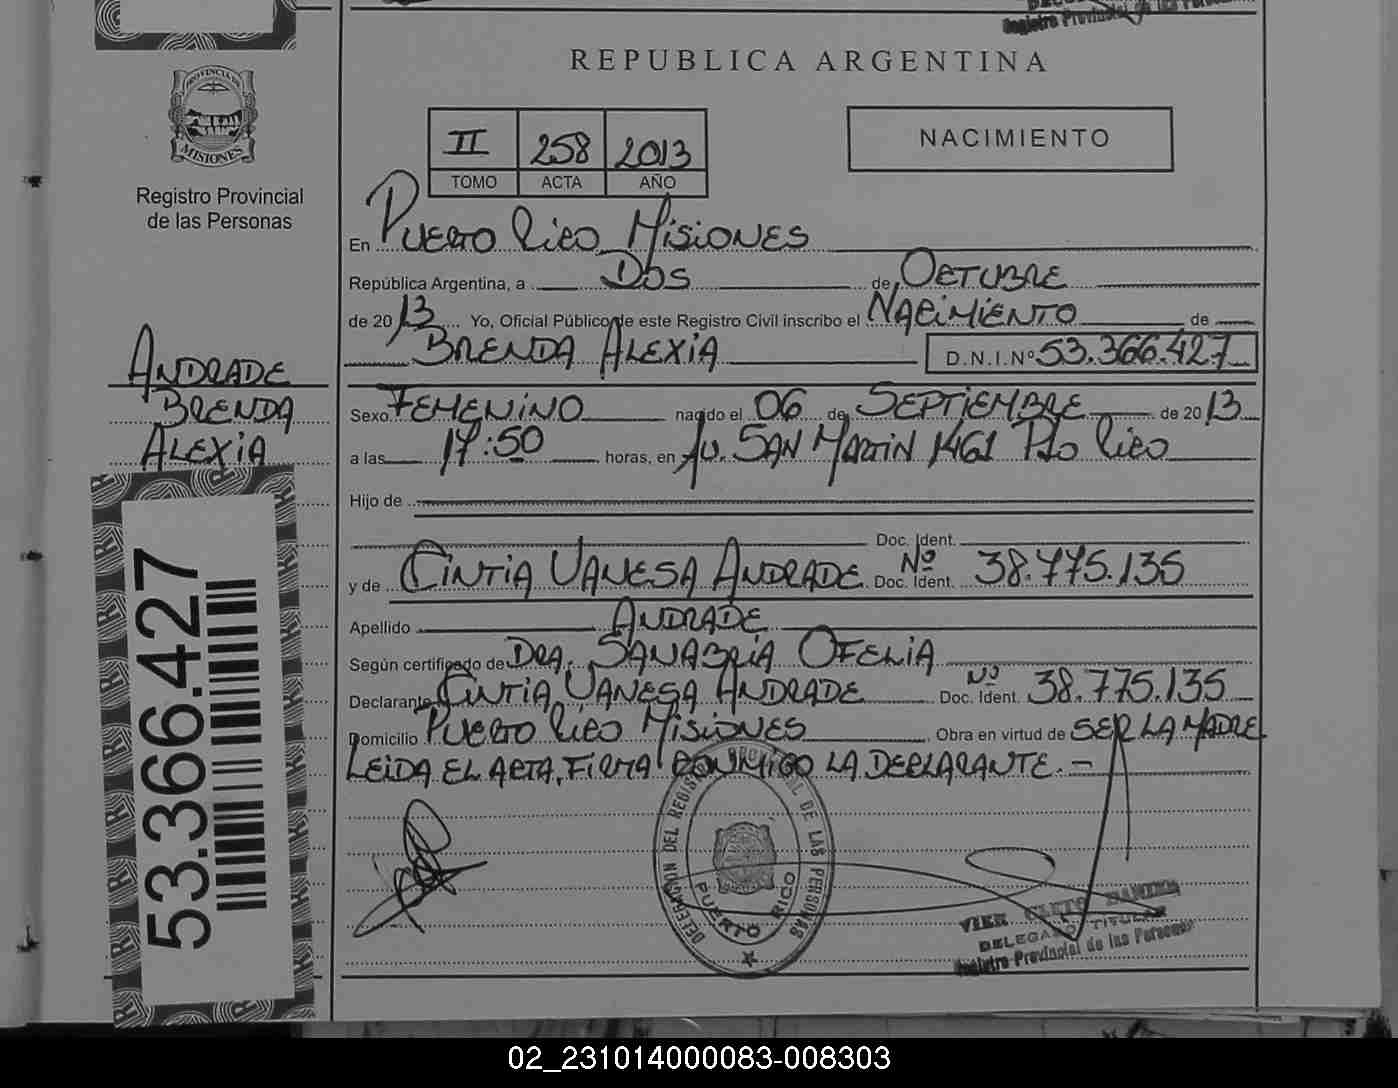 Registro Provincial de las Personas
REPUBLICA ARGENTINA
II 258 2013
TOMO ACTA AÑO
NACIMIENTO
PROVINCIA DE
MISIONES
Registro Provincial
de las Personas
ANDRADE
BRENDA
ALEXIA
53.366.427
En PUERTO RICO MISIONES
República Argentina, a DOS de OCTUBRE
de 2013 Yo, Oficial Público de este Registro Civil inscribo el NACIMIENTO de
BRENDA ALEXIA D.N.I.Nº 53.366.427
Sexo FEMENINO nacido el 06 de SEPTIEMBRE de 2013
a las 17:50 horas, en AV. SAN MARTIN 1461 PTO RICO
Hijo de
Doc. Ident.
y de CINTIA VANESA ANDRADE Doc. Ident. Nº 38.775.135
Apellido ANDRADE
Según certificado de DRA. SANABRIA OFELIA
Declarante CINTIA VANESA ANDRADE Doc. Ident. Nº 38.775.135
Domicilio PUERTO RICO MISIONES Obra en virtud de SER LA MADRE
LEIDA EL ACTA, FIRMA CONMIGO LA DECLARANTE.-
DELEGACION DEL REGISTRO PROVINCIAL DE LAS PERSONAS
PUERTO RICO
VIER
DELEGADO TITULAR
Registro Provincial de las Personas
02_231014000083-008303